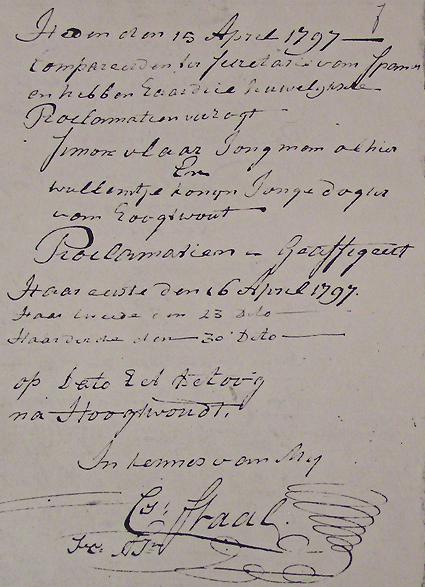 Heeden den 15 April 1797
Compareerden ter Secretarie van Spann
en hebben haardlie huwelykse
Proclamatien versogt
Simon vlaar Jongman alhier
En
willemtje konyn Jonge dogter
van hoogwout
Proclamatien Geaffigeert
Haar eerste den 16 April 1797.
Haar tweede den 23 Dito
Haar derde den 30 Dito
op Dato
na Hoogwoudt.
In kennes van My
Cs. Staal.